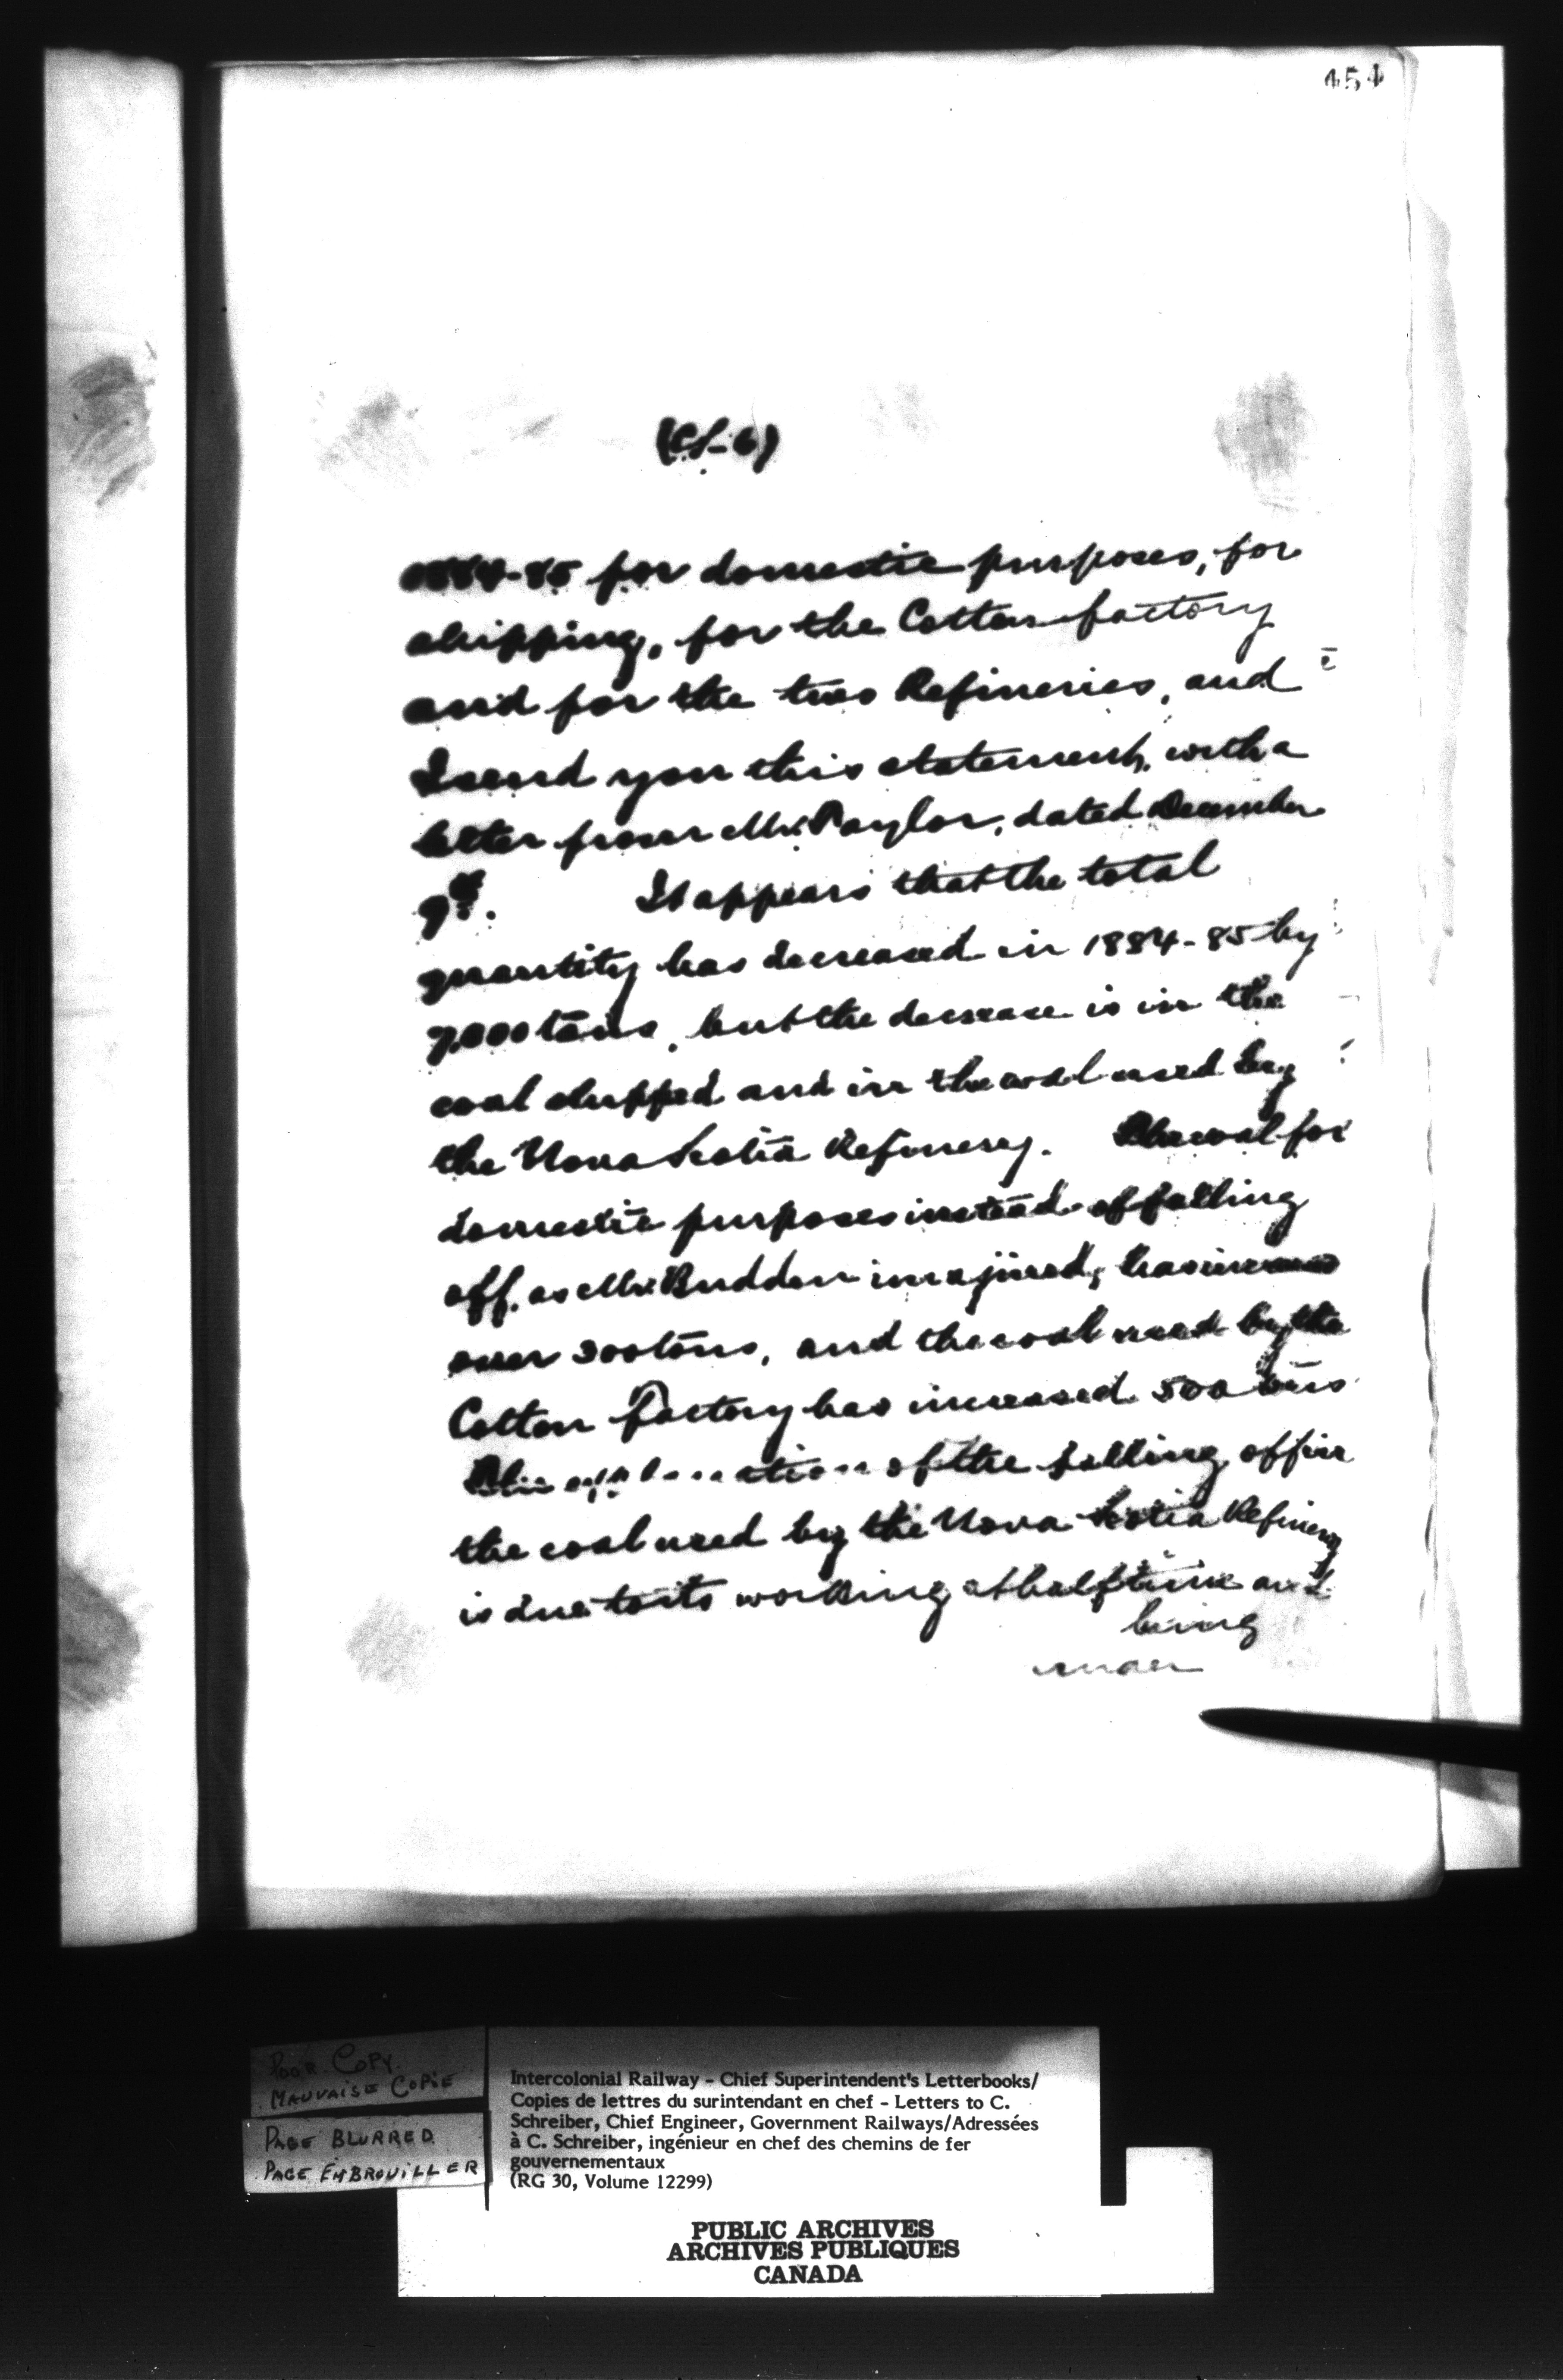 454
1884-85 for domestic purposes, for
shipping, for the Cotton factory
and for the two Refineries, and
I send you this statement, with a
letter from Mr. Taylor, dated December
9th. It appears that the total
quantity has decreased in 1884-85 by
7,000 tons, but the decrease is in the
coal shipped and in the coal used by
the Nova Scotia Refinery. The coal for
domestic purposes instead of falling
off, as Mr. Budden imagined, has
over 300 tons, and the coal used by the
Cotton Factory has increased 500 tons
The explanation of the falling off in
the coal used by the Nova Scotia Refinery
is due to its working at half time and
being
POOR COPY.
MAUVAISE COPIE
PAGE BLURRED
PAGE EMBROUILLER
Intercolonial Railway - Chief Superintendent's Letterbooks/
Copies de lettres du surintendant en chef - Letters to C.
Schreiber, Chief Engineer, Government Railways/Adressées
à C. Schreiber, ingénieur en chef des chemins de fer
gouvernementaux
(RG 30, Volume 12299)
PUBLIC ARCHIVES
ARCHIVES PUBLIQUES
CANADA